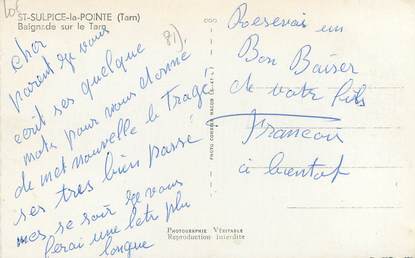 ST-SULPICE-la-POINTE (Tarn)
Baignade sur le Tarn
81).
Cher
parent je vous
ecrit ses quelque
mots pour vous donne
de met nouvelle le Tragé
ses tres bien passé
mes se soir je vous
ferai une letr plu
longue
Resevai un
Bon Baiser
de votr fils
Francois
a bientot
PHOTOGRAPHIE VÉRITABLE
Reproduction Interdite